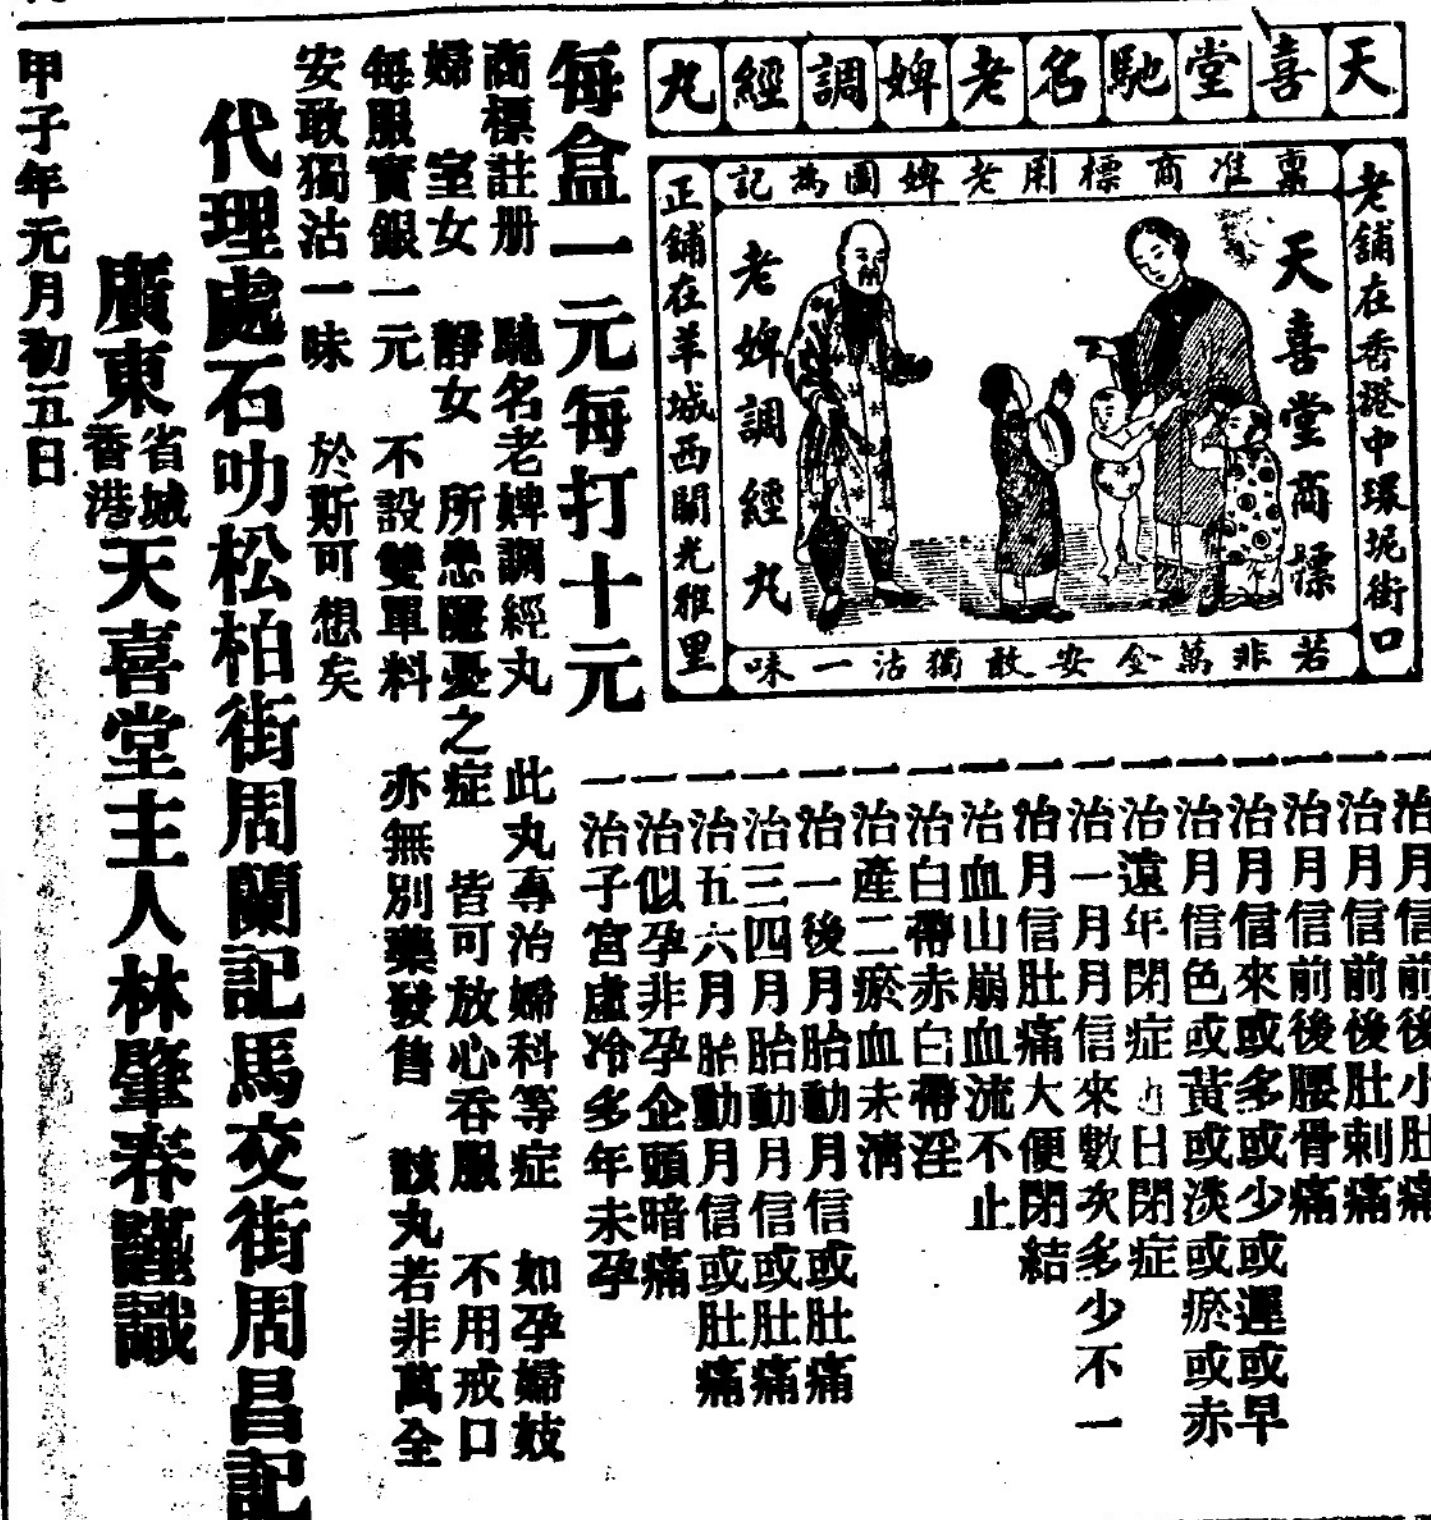 天喜堂馳名老婢調經丸
稟准商標用老婢圖為記
老舖在香港中環坭街口
天喜堂商標
老婢調經丸
正舖在羊城西關光雅里
若非萬全安敢獨沽一味
一治月信前後小肚痛
一治月信前後肚刺痛
一治月信前後腰骨痛
一治月信來或多或少或遲或早
一治月信色或黃或淡或瘀或赤
一治遠年閉症近日閉症
一治一月月信來數次多少不一
一治月信肚痛大便閉結
一治血山崩血流不止
一治白帶赤白帶淫
一治產二瘀血未清
一治一後月胎動月信或肚痛
一治三四月胎動月信或肚痛
一治五六月胎動月信或肚痛
一治似孕非孕企頭暗痛
一治子宮虛冷多年未孕
每盒一元每打十元
商標註册 馳名老婢調經丸 此丸專治婦科等症 如孕婦妓
婦 室女 靜女 所患隱憂之症 皆可放心吞服 不用戒口
每服實銀一元 不設雙單料 亦無別藥發售 該丸若非萬全
安敢獨沽一味 於斯可想矣
代理處石叻松柏街周蘭記馬交街周昌記
廣東省城香港天喜堂主人林肇春謹識
甲子年元月初五日